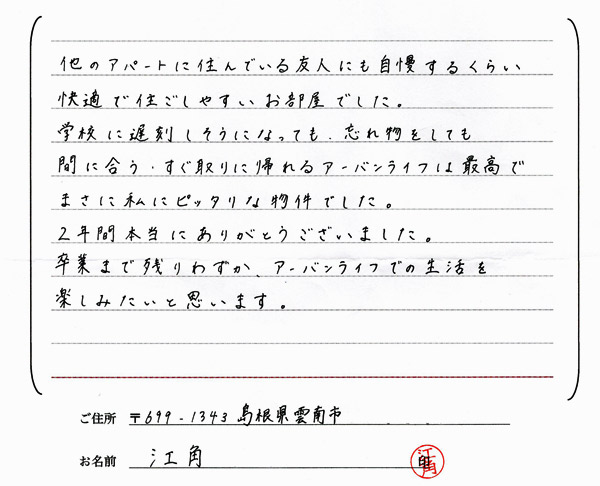 他のアパートに住んでいる友人にも自慢するくらい
快適で住ごしやすいお部屋でした。
学校に遅刻しそうになっても、忘れ物をしても
間に合う・すぐ取りに帰れるアーバンライフは最高で
まさに私にピッタリな物件でした。
2年間本当にありがとうございました。
卒業まで残りわずか、アーバンライフでの生活を
楽しみたいと思います。
ご住所 〒699-1343 島根県雲南市
お名前 江角 印 江角